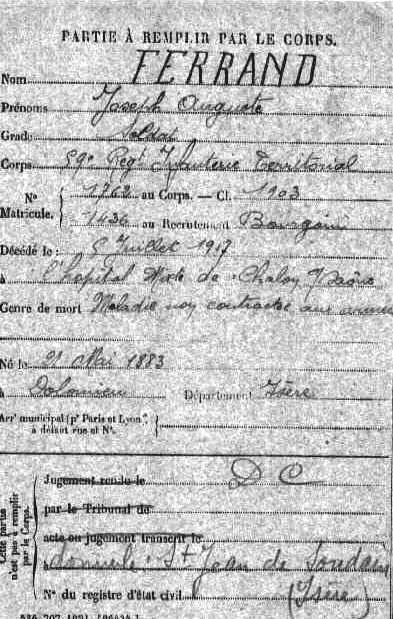 PARTIE À REMPLIR PAR LE CORPS.
Nom FERRAND
Prénoms Joseph Auguste
Grade Soldat
Corps 59e Regt Infanterie Territorial
No Matricule. 1762 au Corps. — Cl. 1903
1436 au Recrutement Bourgoin
Décédé le Juillet 1917
à l'hopital Mixte de Chalon s/Saône
Genre de mort Maladie non contractée aux armées
Né le 21 Mai 1883
à Dolomieu Département Isère
Arrt municipal (pr Paris et Lyon),
à défaut rue et No.
Cette partie n'est pas à remplir par le Corps.
Jugement rendu le D C
par le Tribunal de
acte ou jugement transcrit le
domicile St Jean de Soudain
(Isère)
No du registre d'état civil